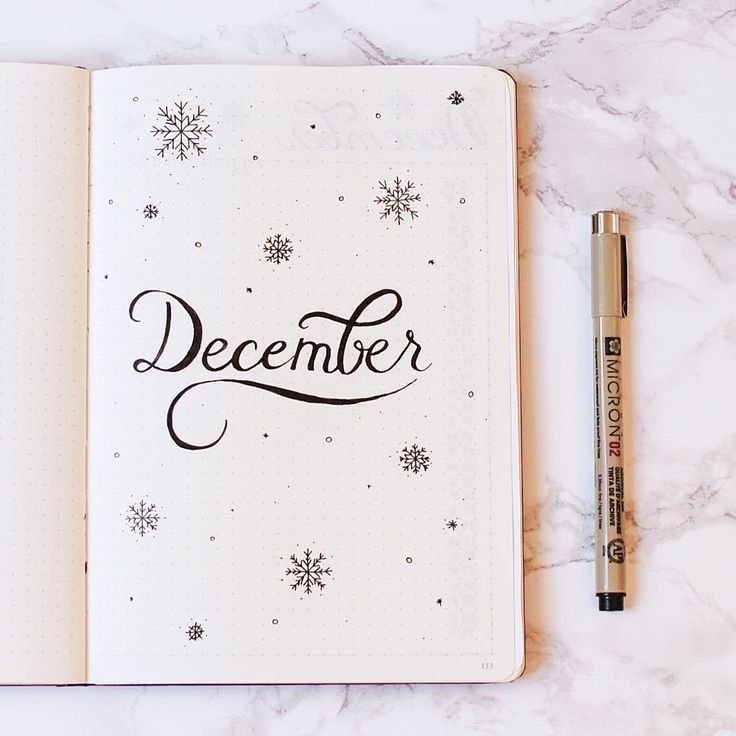 December
153
MICRON 02
QUALITÉ D'ARCHIVAGE
TINTA DE ARCHIVE
AP